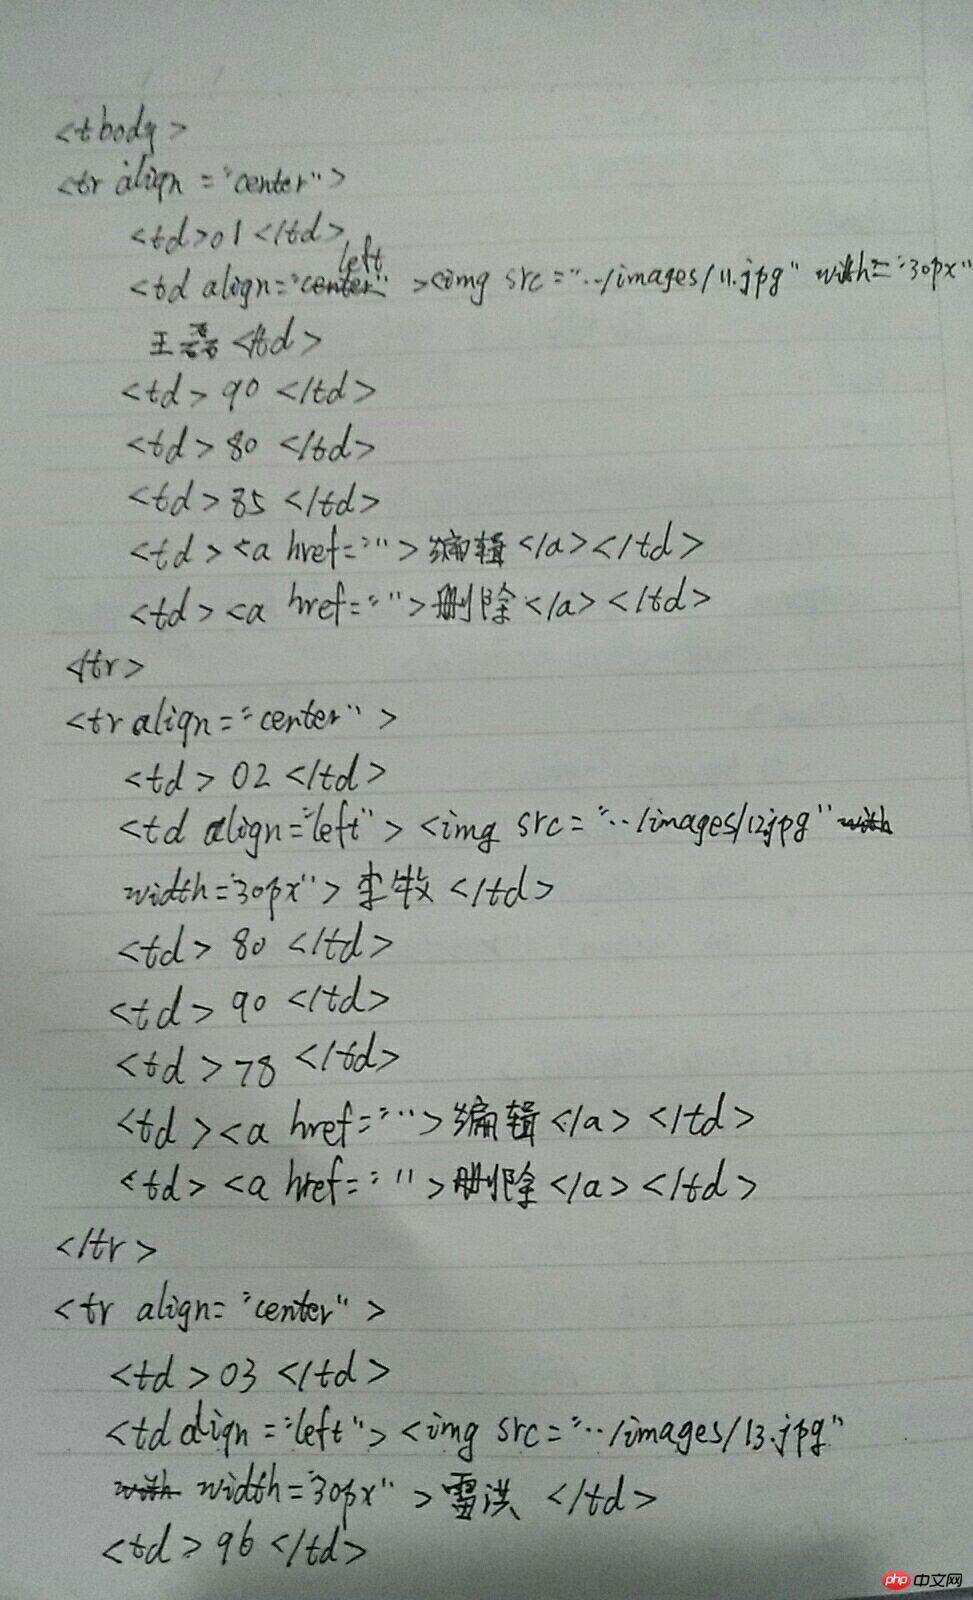 <tbody>
<tr align="center">
<td>01</td>
<td align="left"><img src="../images/11.jpg" with="30px"
王磊</td>
<td>90</td>
<td>80</td>
<td>85</td>
<td><a href="">编辑</a></td>
<td><a href="">删除</a></td>
</tr>
<tr align="center">
<td>02</td>
<td align="left"><img src="../images/12.jpg"
width="30px">李牧</td>
<td>80</td>
<td>90</td>
<td>78</td>
<td><a href="">编辑</a></td>
<td><a href="">删除</a></td>
</tr>
<tr align="center">
<td>03</td>
<td align="left"><img src="../images/13.jpg"
width="30px">雷洪</td>
<td>96</td>
php 中文网